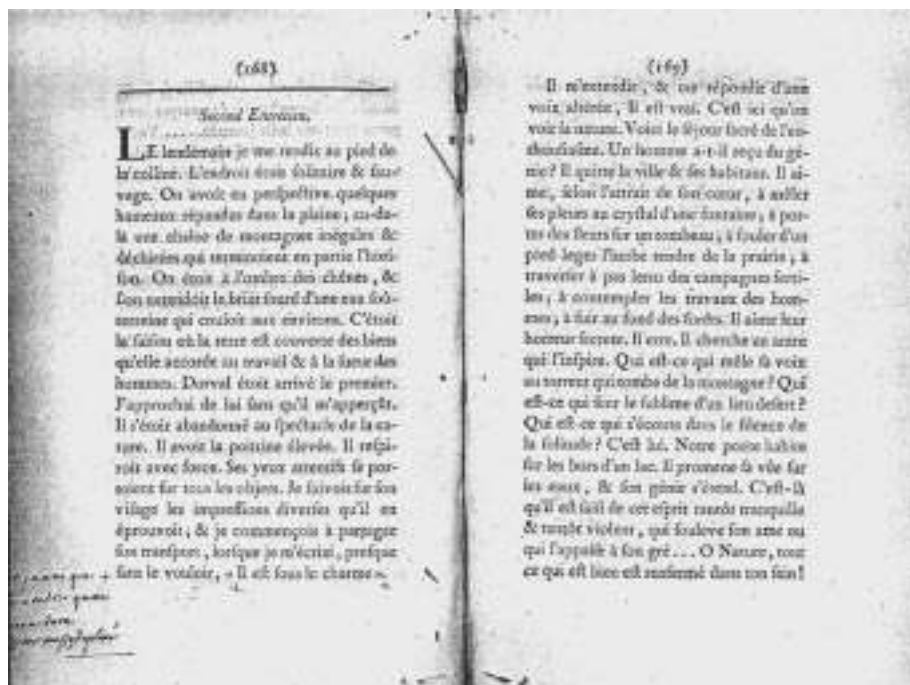 (168)
Second Entretien.
LE lendemain je me rendis au pied de
la colline. L'endroit étoit solitaire & sau-
vage. On avoit en perspective quelques
hameaux répandus dans la plaine; au-de-
là une chaîne de montagnes inégales &
déchirées qui terminoient en partie l'hori-
son. On étoit à l'ombre des chênes, &
l'on entendoit le bruit sourd d'une eau soû-
terreine qui couloit aux environs. C'étoit
la saison où la terre est couverte des biens
qu'elle accorde au travail & à la sueur des
hommes. Dorval étoit arrivé le premier.
J'approchai de lui sans qu'il m'apperçût.
Il s'étoit abandonné au spectacle de la na-
ture. Il avoit la poitrine élevée. Il respi-
roit avec force. Ses yeux attentifs se por-
toient sur tous les objets. Je suivois sur son
visage les impressions diverses qu'il en
éprouvoit; & je commençois à partager
son transport, lorsque je m'écriai, presque
sans le vouloir, « Il est sous le charme ».
(169)
Il m'entendit, & me répondit d'une
voix altérée, Il est vrai. C'est ici qu'on
voit la nature. Voici le séjour sacré de l'en-
thousiasme. Un homme a-t-il reçu du gé-
nie? Il quitte la ville & ses habitans. Il ai-
me, selon l'attrait de son cœur, à mêler
ses pleurs au crystal d'une fontaine; à por-
ter des fleurs sur un tombeau; à fouler d'un
pied leger l'herbe tendre de la prairie; à
traverser à pas lents des campagnes ferti-
les; à contempler les travaux des hom-
mes; à fuir au fond des forêts. Il aime leur
horreur secrete. Il erre. Il cherche un antre
qui l'inspire. Qui est-ce qui mêle sa voix
au torrent qui tombe de la montagne? Qui
est-ce qui sent le sublime d'un lieu desert?
Qui est-ce qui s'écoute dans le silence de
la solitude? C'est lui. Notre poete habite
sur les bors d'un lac. Il promene sa vûe sur
les eaux, & son génie s'étend. C'est-là
qu'il est saisi de cet esprit tantôt tranquille
& tantôt violent, qui souleve son ame ou
qui l'appaise à son gré... O Nature, tout
ce qui est bien est renfermé dans ton sein!